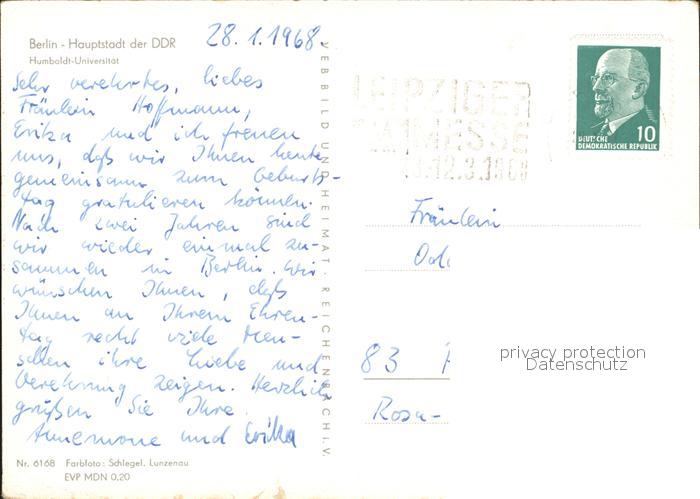 Berlin - Hauptstadt der DDR
Humboldt-Universität
28.1.1968.
Sehr verehrtes, liebes
Fräulein Hoffmann,
Erika und ich freuen
uns, daß wir Ihnen heute
gemeinsam zum Geburts-
tag gratulieren können.
Nach zwei Jahren sind
wir wieder einmal zu-
sammen in Berlin. Wir
wünschen Ihnen, daß
Ihnen an Ihrem Ehren-
tag recht viele Men-
schen ihre Liebe und
Verehrung zeigen. Herzlich
grüßen Sie Ihre
Annemone und Erika
Nr. 6168 Farbfoto: Schlegel, Lunzenau
EVP MDN 0,20
VEB BILD UND HEIMAT REICHENBACH I. V.
LEIPZIGER
MESSE
12.3.19
10
DEUTSCHE
DEMOKRATISCHE REPUBLIK
Fräulein
83
Rosa-
privacy protection
Datenschutz